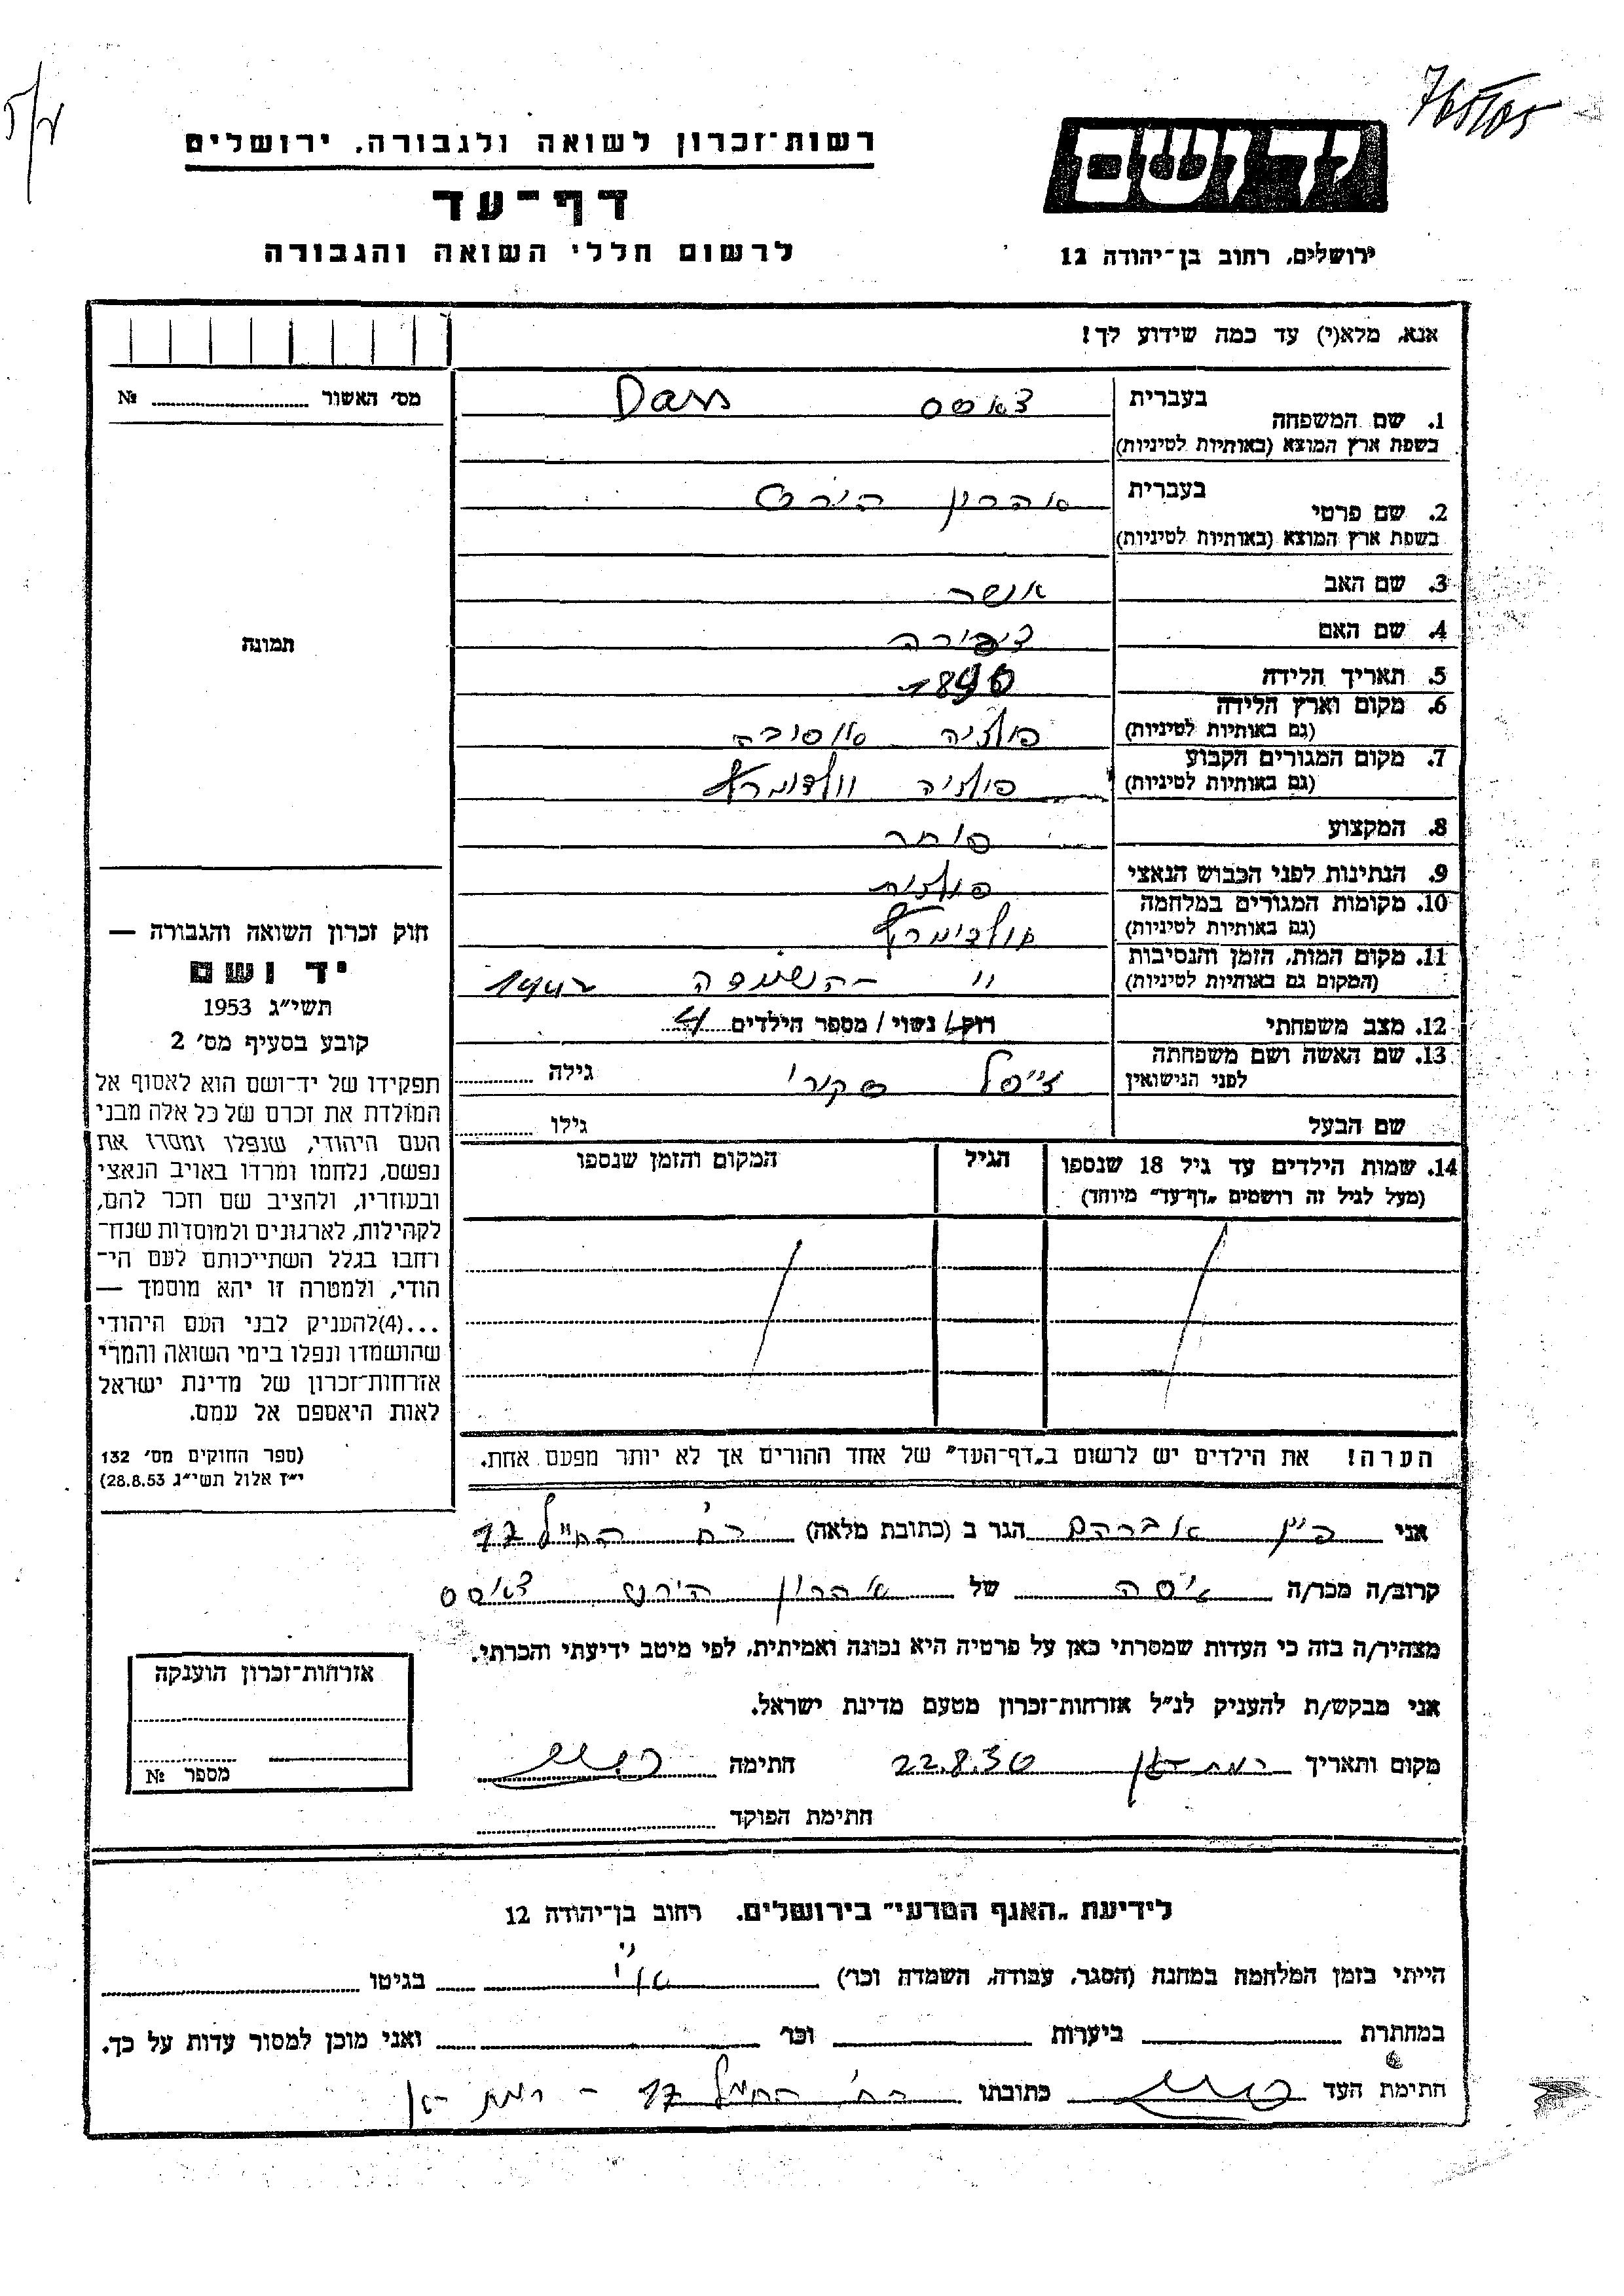 רשות־זכרון לשואה ולגבורה, ירושלים
דף־עד
לרשום חללי השואה והגבורה
יד ושם
ירושלים, רחוב בן־יהודה 12
אנא, מלא(י) עד כמה שידוע לך!
מס' האשור № 
תמונה
בעברית Dass
1. שם המשפחה
בשפת ארץ המוצא (באותיות לטיניות)
בעברית אהרון הירש
2. שם פרטי
בשפת ארץ המוצא (באותיות לטיניות)
3. שם האב אנשר
4. שם האם ציפורה
5. תאריך הלידה
6. מקום וארץ הלידה פולניה
(גם באותיות לטיניות)
7. מקום המגורים הקבוע פולניה
(גם באותיות לטיניות)
8. המקצוע סוחר
9. הנתינות לפני הכבוש הנאצי פולנית
10. מקומות המגורים במלחמה
(גם באותיות לטיניות)
11. מקום המות, הזמן והנסיבות " - השמדה 1942
(המקום גם באותיות לטיניות)
12. מצב משפחתי רוק/ נשוי / מספר הילדים 4
13. שם האשה ושם משפחתה לפני הנישואין גילה
שם הבעל גילו
14. שמות הילדים עד גיל 18 שנספו הגיל המקום והזמן שנספו
(מעל לגיל זה רושמים „דף־עד” מיוחד)
הערה! את הילדים יש לרשום ב„דף־העד” של אחד ההורים אך לא יותר מפעם אחת.
חוק זכרון השואה והגבורה —
יד ושם
תשי״ג 1953
קובע בסעיף מס' 2
תפקידו של יד־ושם הוא לאסוף אל
המולדת את זכרם של כל אלה מבני
העם היהודי, שנפלו ומסרו את
נפשם, נלחמו ומרדו באויב הנאצי
ובעוזריו, ולהציב שם וזכר להם,
לקהילות, לארגונים ולמוסדות שנח־
רחבו בגלל השתייכותם לעם הי־
הודי, ולמטרה זו יהא מוסמך —
...(4)להעניק לבני העם היהודי
שהושמדו ונפלו בימי השואה והמרי
אזרחות־זכרון של מדינת ישראל
לאות היאספם אל עמם.
(ספר החוקים מס' 132
י״ז אלול תשי״ג 28.8.53)
אני אברהם הגר ב (כתובת מלאה) רח' החי״ל 17
קרוב/ה מכר/ה של אהרון הירש
מצהיר/ה בזה כי העדות שמסרתי כאן על פרטיה היא נכונה ואמיתית, לפי מיטב ידיעתי והכרתי.
אני מבקש/ת להעניק לנ״ל אזרחות־זכרון מטעם מדינת ישראל.
מקום ותאריך רמת־גן חתימה
חתימת הפוקד
אזרחות־זכרון הוענקה
מספר №
לידיעת „האגף הטרעי” בירושלים, רחוב בן־יהודה 12
הייתי בזמן המלחמה במחנה (הסגר, עבודה, השמדה וכו') בגיטו
במחתרת ביערות וכו' ואני מוכן למסור עדות על כך.
חתימת העד כתובתו רח' החי״ל 17 - רמת גן